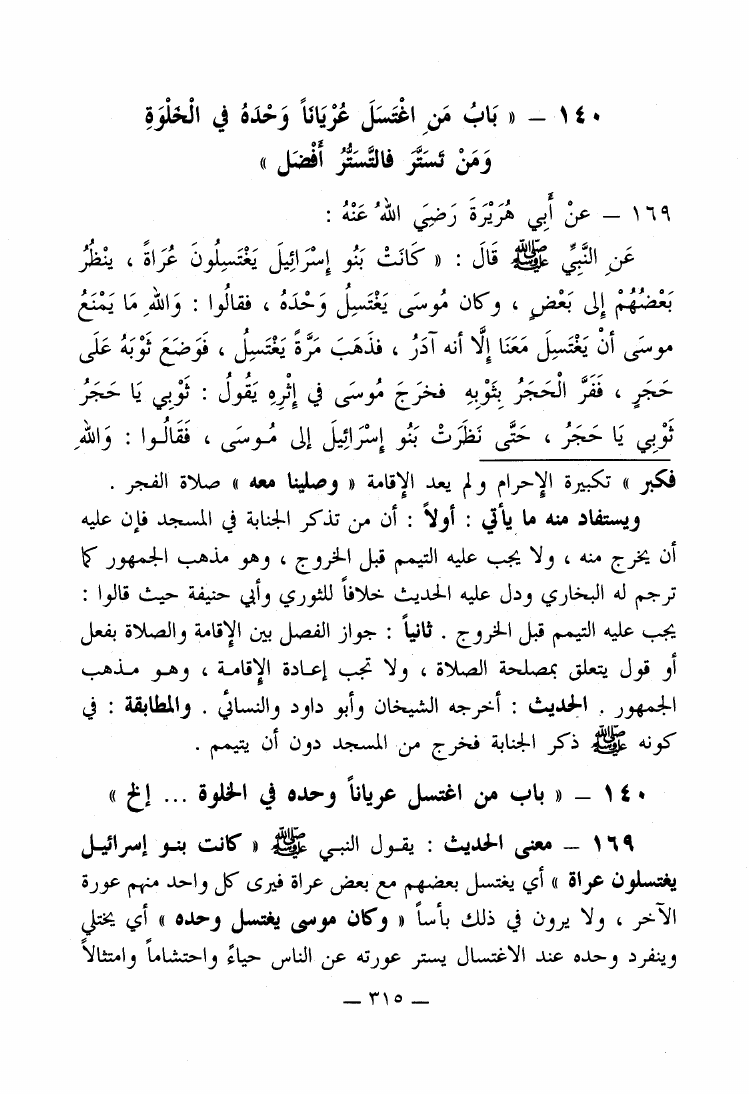 ١٤٠ – « بَابُ مَنِ اغْتَسَلَ عُرْيَاناً وَحْدَهُ في الْخَلْوَةِ
وَمَنْ تَسَتَّرَ فالتَّسَتُّرُ أَفْضَل »
١٦٩ – عنْ أَبِي هُرَيْرَةَ رَضِيَ اللهُ عَنْهُ :
عَنِ النَّبِيِّ ﷺ قَالَ : « كَانَتْ بَنُو إِسْرَائِيلَ يَغْتَسِلُونَ عُرَاةً ، يَنْظُرُ
بَعْضُهُمْ إِلى بَعْضٍ ، وكان مُوسَى يَغْتَسِلُ وَحْدَهُ ، فقالُوا : وَاللهِ مَا يَمْنَعُ
موسَى أنْ يَغْتَسِلَ مَعَنَا إِلَّا أنه آدَرُ ، فذَهَبَ مَرَّةً يَغْتَسِلُ ، فَوَضَعَ ثَوْبَهُ عَلَى
حَجَرٍ ، فَفَرَّ الْحَجَرُ بِثَوْبِهِ فخرَجَ مُوسَى في إِثْرِهِ يَقُولُ : ثَوْبِي يَا حَجَرُ
ثَوْبِي يا حَجَرُ ، حَتَّى نَظَرَتْ بَنُو إِسْرَائِيلَ إلى مُوسَى ، فَقَالُوا : وَاللهِ
فكبر » تكبيرة الإحرام ولم يعد الإقامة « وصلينا معه » صلاة الفجر .
ويستفاد منه ما يأتي : أولاً : أن من تذكر الجنابة في المسجد فإن عليه
أن يخرج منه ، ولا يجب عليه التيمم قبل الخروج ، وهو مذهب الجمهور كما
ترجم له البخاري ودل عليه الحديث خلافاً للثوري وأبي حنيفة حيث قالوا :
يجب عليه التيمم قبل الخروج . ثانياً : جواز الفصل بين الإقامة والصلاة بفعل
أو قول يتعلق بمصلحة الصلاة ، ولا تجب إعادة الإقامة ، وهو مذهب
الجمهور . الحديث : أخرجه الشيخان وأبو داود والنسائي . والمطابقة : في
كونه ﷺ ذكر الجنابة فخرج من المسجد دون أن يتيمم .
١٤٠ – « باب من اغتسل عرياناً وحده في الخلوة ... إلخ »
١٦٩ – معنى الحديث : يقول النبي ﷺ « كانت بنو إسرائيل
يغتسلون عراة » أي يغتسل بعضهم مع بعض عراة فيرى كل واحد منهم عورة
الآخر ، ولا يرون في ذلك بأساً « وكان موسى يغتسل وحده » أي يختلي
وينفرد وحده عند الاغتسال يستر عورته عن الناس حياءً واحتشاماً وامتثالاً
— ٣١٥ —